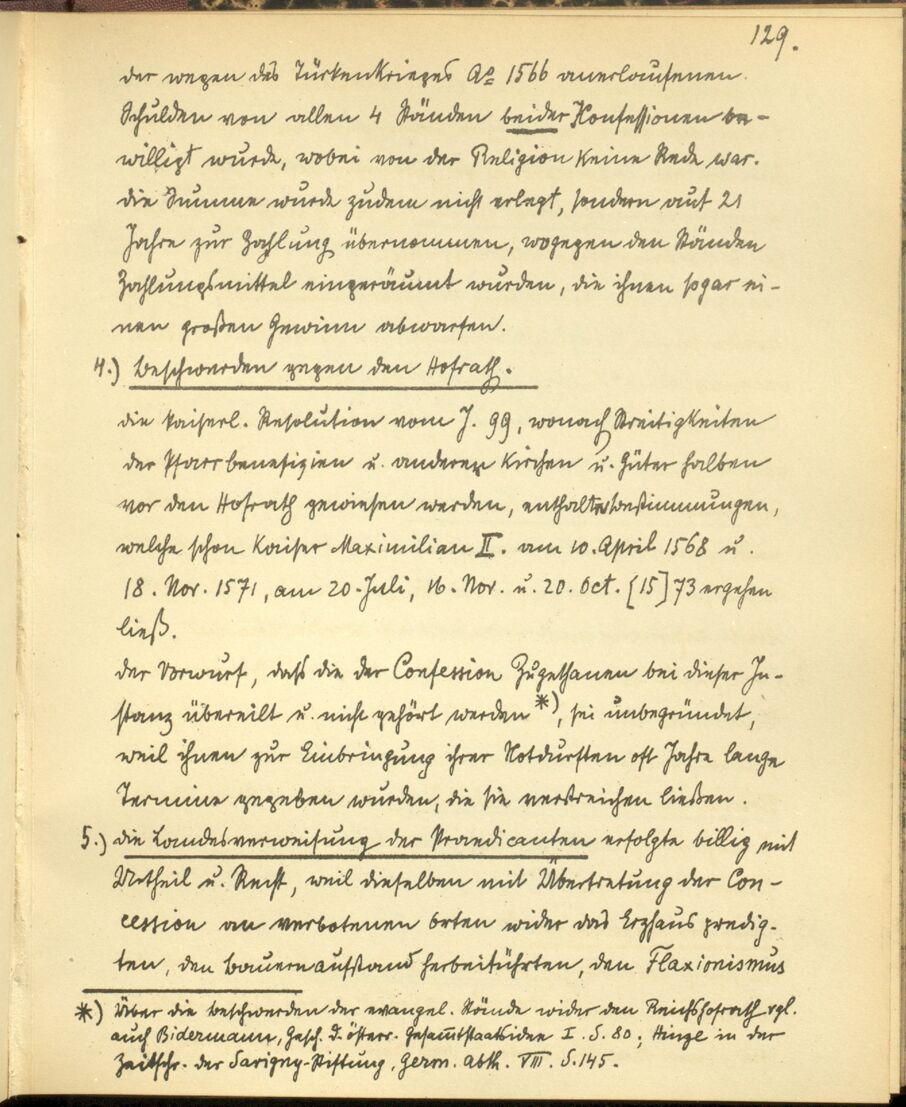 129.
der wegen des Türkenkrieges Aº 1566 auerlaufenen
Schulden von allen 4 Ständen beider Konfessionen be-
willigt wurde, wobei von der Religion keine Rede war.
die Summe wurde zudem nicht erlegt, sondern auf 21
Jahre zur Zahlung übernommen, wogegen den Ständen
Zahlungsmittel eingeräumt wurden, die ihnen sogar ei-
nen großen Gewinn abwarfen.
4.) Beschwerden gegen den Hofrath.
die kaiserl. Resolution vom J. 99, wonach Streitigkeiten
der Pfarrbenefizien u. anderer Kirchen u. Güter halben
vor den Hofrath gewiesen werden, enthalte Bestimmungen,
welche schon Kaiser Maximilian II. am 10. April 1568 u.
18. Nov. 1571, am 20. Juli, 16. Nov. u. 20. Oct. [15]73 ergehen
ließ.
der Vorwurf, daß die der Confession Zugethanen bei dieser In-
stanz übereilt u. nicht gehört werden *), sei unbegründet,
weil ihnen zur Einbringung ihrer Notdurften oft Jahre lange
Termine gegeben wurden, die sie verstreichen ließen.
5.) die Landesverweisung der Praedicanten erfolgte billig mit
Urtheil u. Recht, weil dieselben mit Übertretung der Con-
cession an verbotenen Orten wider das Erzhaus predig-
ten, den Bauernaufstand herbeiführten, den Flaxionismus
*) Über die Beschwerden der evangel. Stände wider den Reichshofrath vgl.
auch Bidermann, Gesch. d. österr. Gesammtstaatsidee I. S. 80; in der
Zeitschr. der Savigny-Stiftung, Germ. Abth. VIII. S. 145.